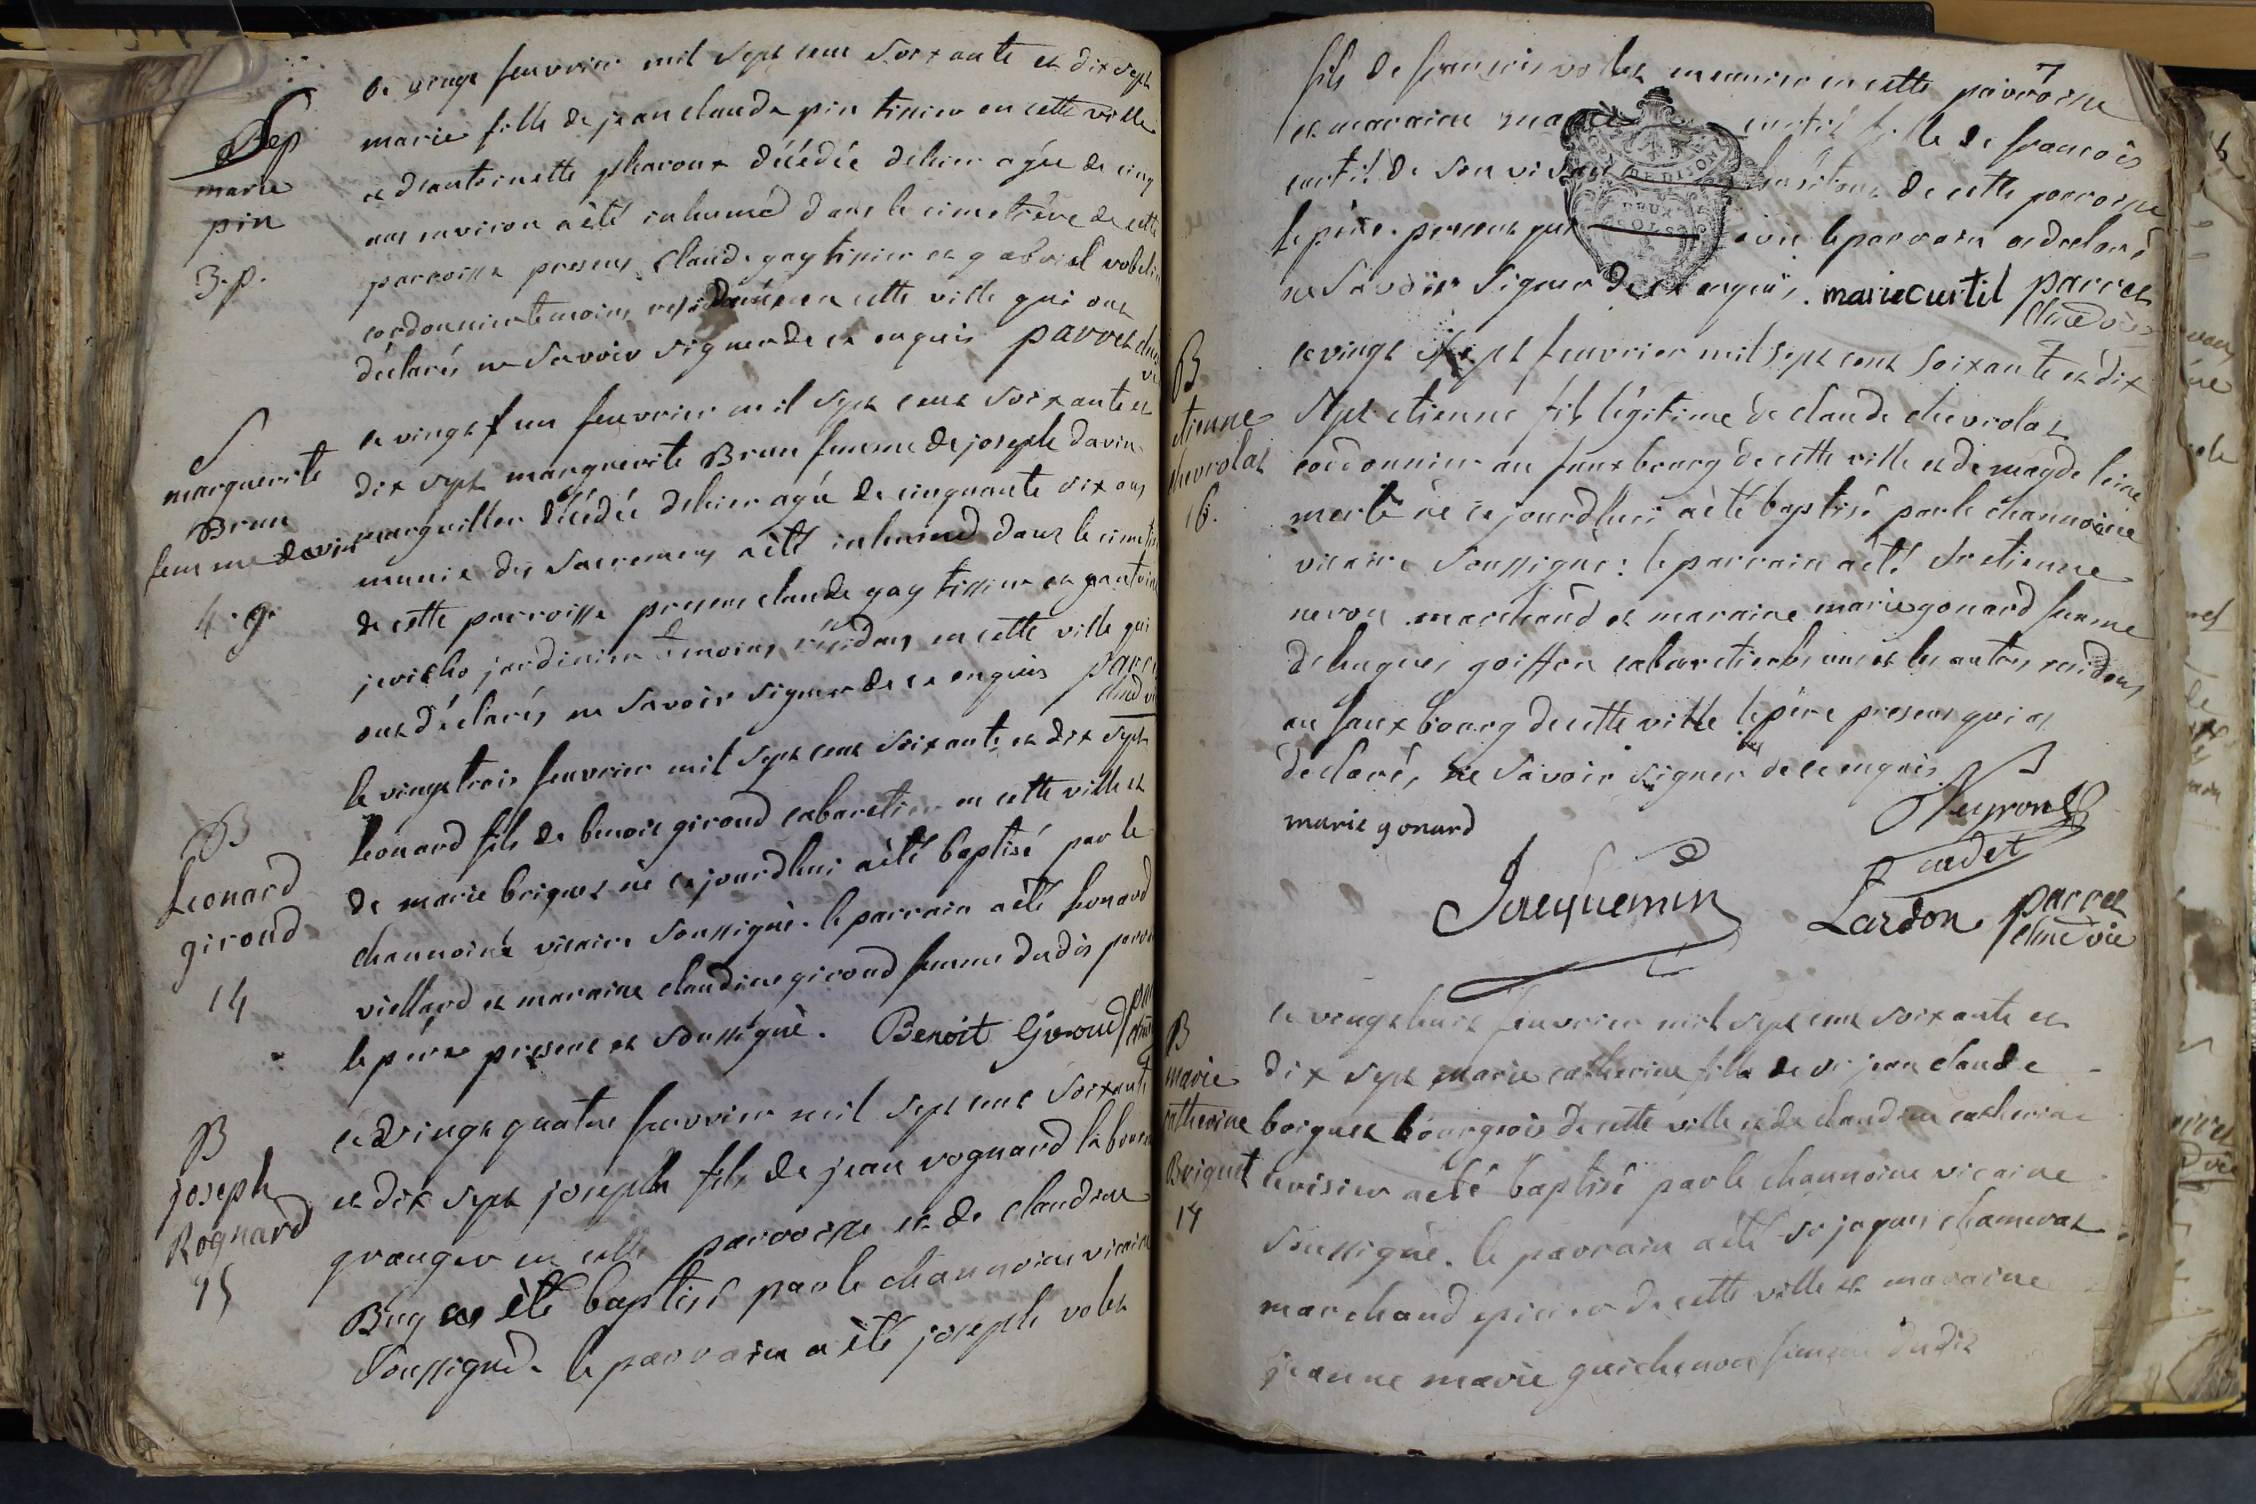 Sep
marie
pin
3. p.
le vingt feuvrier mil sept cent soixante et dix sept
marie fille de jean claude pin tissier en cette ville
et d'antoinette pharoux décédée dehier agée de cinq
ans environ a été inhumé dans le cimetière de cette
parroisse presens claude gay tissier et gabriel
cordonnier temoins residens en cette ville qui ont
déclarés ne savoir signer de ce enquis parret
S
marguerite
Brun
femme davin
4. g.
le vingt un feuvrier mil sept cent soixante et
dix sept marguerite Brun femme de joseph davin
marguillier décédée dehier agée de cinquante six ans
munie des sacremens a été inhumé dans le
de cette parroisse presens claude gay tissier et
jardinier temoins résidans en cette ville qui
ont déclarés ne savoir signer de ce enquis
B
Leonard
giroud
14
le vingt trois feuvrier mil sept cent soixante et dix sept
leonard fils de benoit giroud cabaretier en cette ville et
de marie briquet né ce jourdhui a été baptisé par le
channoine vicaire soussigné. le parrain a été leonard
viellard et maraine claudine giroud femme dudit
le père present et soussigné. Benoit Giroud
B
joseph
Rognard
15
le vingt quatre feuvrier mil sept cent soixante
et dix sept joseph fils de jean rognard
granger en cette parroisse et de claudine
Buy a été baptisé par le channoine vicaire
soussigné. le parrain a été joseph volet
7
fils de francois volet meunier en cette parroisse
et maraine marie curtil fille de francois
curtil de son vivant de cette parroisse
le père present qui avec le parrain a declaré
ne savoir signer de ce enquis. marie curtil parret
B
etienne
chevrolat
16.
le vingt sept feuvrier mil sept cent soixante et dix
sept etienne fils légitime de claude chevrolat
cordonnier au fauxbourg de cette ville et de magdeleine
merle né ce jourdhui a été baptisé par le channoine
vicaire soussigné: le parrain a été Sr etienne
marchand et maraine marie gonard femme
de hugues goiffon cabaretier les uns et les autres residens
au fauxbourg de cette ville le père present qui a
déclaré, ne savoir signer de ce enquis
marie gonard
Neyron
cadet
Jacquemin
Lardon parret
chne vic
B
marie
catherine
Briquet
17
le vingt huit feuvrier mil sept cent soixante et
dix sept marie catherine fille de Sr jean claude
briquet bourgeois de cette ville et de claudine catherine
a été baptisé par le channoine vicaire
soussigné. le parrain a été Sr jaques
marchand epicier de cette ville et maraine
jeanne marie guichenon femme dudit